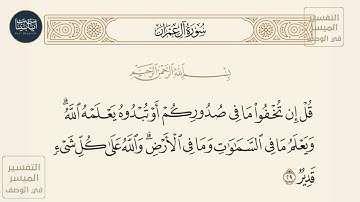 سُورَةُ آلِ عِمْرَانَ
التفسير
الميسر
في الوصف
بِسْمِ اللَّهِ الرَّحْمَٰنِ الرَّحِيمِ
قُلْ إِن تُخْفُوا۟ مَا فِى صُدُورِكُمْ أَوْ تُبْدُوهُ يَعْلَمْهُ ٱللَّهُ ۗ
وَيَعْلَمُ مَا فِى ٱلسَّمَٰوَٰتِ وَمَا فِى ٱلْأَرْضِ ۗ وَٱللَّهُ عَلَىٰ كُلِّ شَىْءٍ
قَدِيرٌ ٢٩
التفسير
الميسر
في الوصف